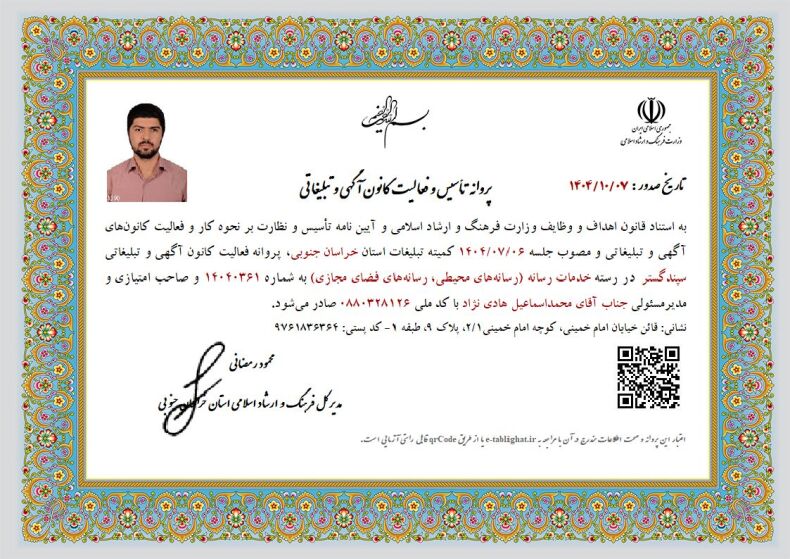 بسم الله الرحمن الرحیم
جمهوری اسلامی ایران
وزارت فرهنگ و ارشاد اسلامی
تاریخ صدور: ۱۴۰۴/۱۰/۰۷
پروانه تأسیس و فعالیت کانون آگهی و تبلیغاتی
به استناد قانون اهداف و وظایف وزارت فرهنگ و ارشاد اسلامی و آیین نامه تأسیس و نظارت بر نحوه کار و فعالیت کانون‌های
آگهی و تبلیغاتی و مصوب جلسه ۱۴۰۴/۰۷/۰۶ کمیته تبلیغات استان خراسان جنوبی، پروانه فعالیت کانون آگهی و تبلیغاتی
سپندگستر در رسته خدمات رسانه (رسانه‌های محیطی، رسانه‌های فضای مجازی) به شماره ۱۴۰۴۰۳۶۱ و صاحب امتیازی و
مدیرمسئولی جناب آقای محمداسماعیل هادی نژاد با کد ملی ۰۸۸۰۳۲۸۱۲۶ صادر می‌شود.
نشانی: قائن خیابان امام خمینی، کوچه امام خمینی۲/۱، پلاک ۹، طبقه ۱- کد پستی: ۹۷۶۱۸۳۶۳۶۴
محمود رمضانی
مدیر کل فرهنگ و ارشاد اسلامی استان خراسان جنوبی
اعتبار این پروانه و صحت اطلاعات مندرج در آن با مراجعه به e-tablighat.ir یا از طریق qrCode قابل راستی آزمایی است.